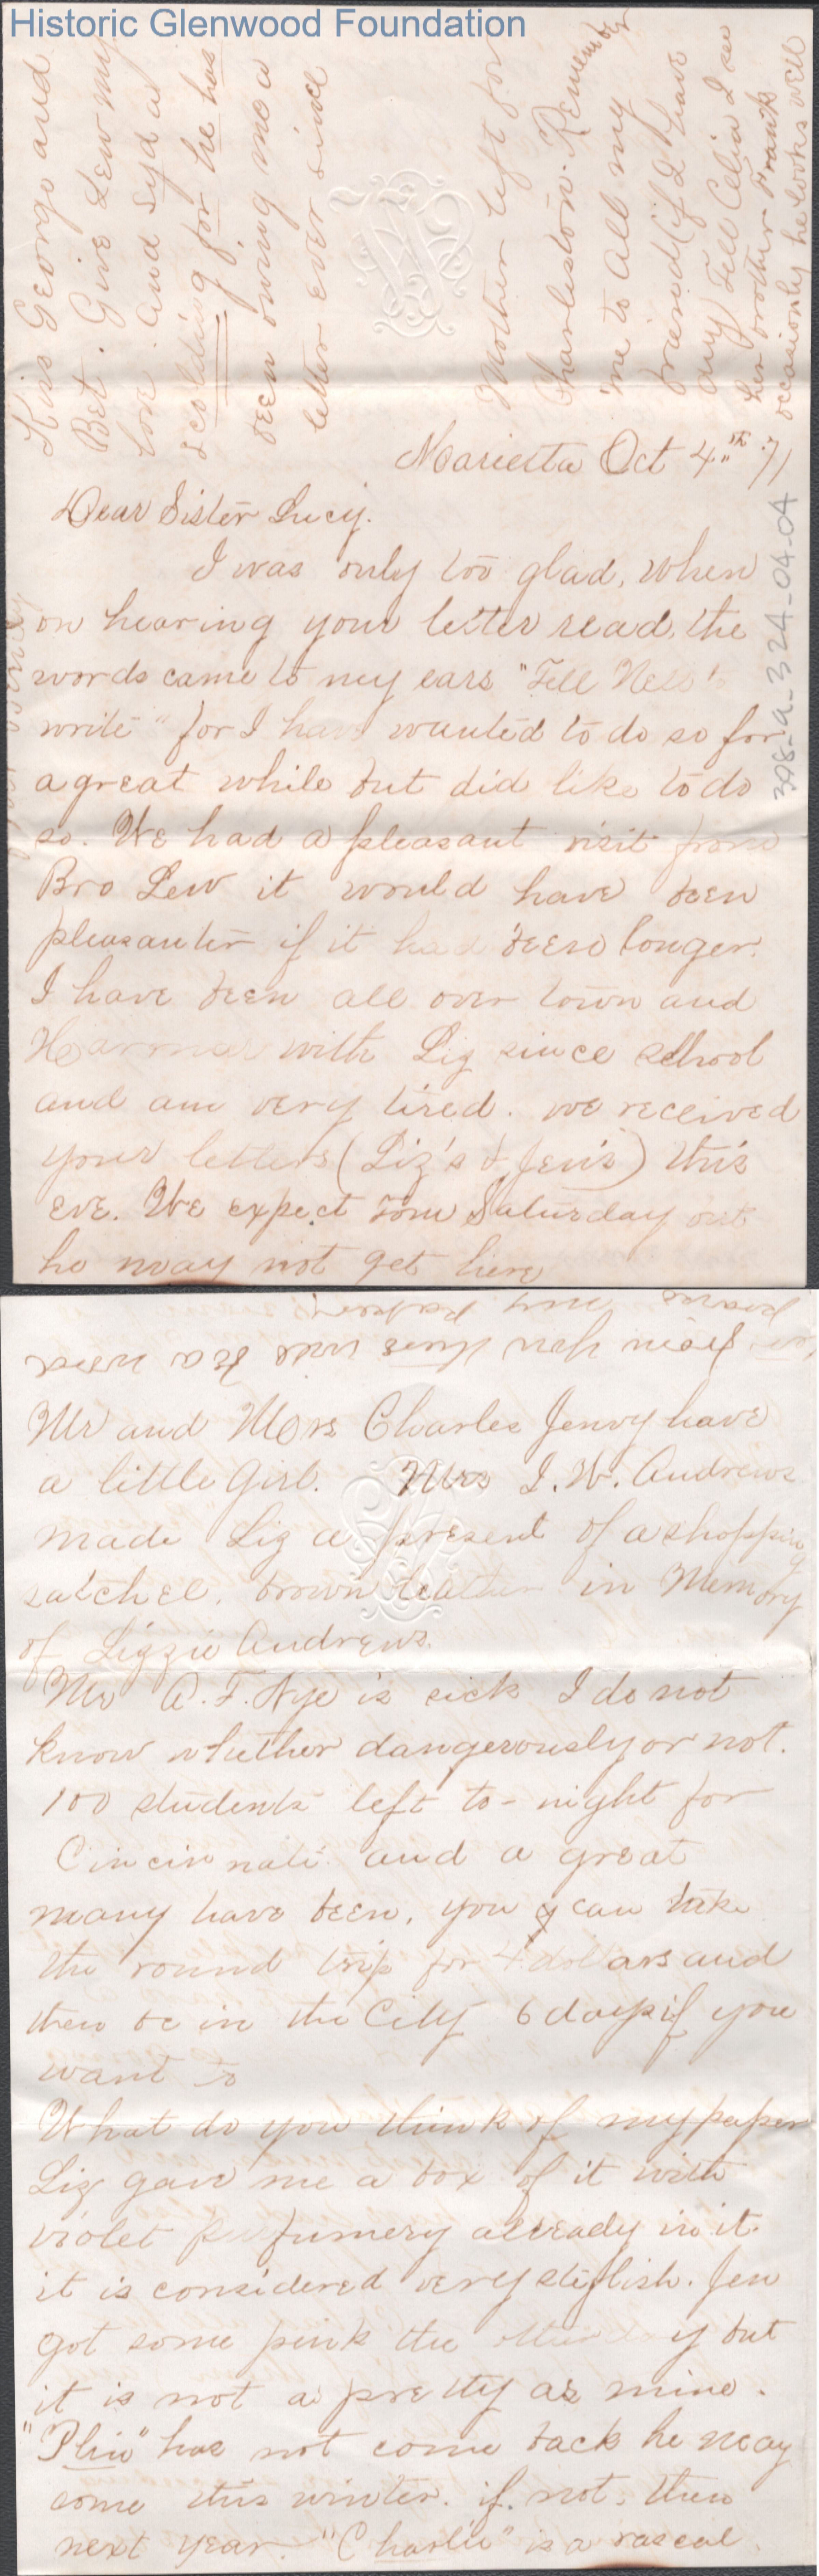 Historic Glenwood Foundation
Kiss George and
Bet. Give Lew my
love and Syd a
scolding for he has
been owing me a
letter ever since
Mother left for
Charleston. Remember
me to all my
friends (if I have
any) Tell Celia I see
her brother Frank
occasionly he looks well
Marietta Oct 4th 71
Dear Sister Lucy.
I was only too glad, when
on hearing your letter read, the
words came to my ears "Tell Nell to
write" for I have wanted to do so for
a great while but did like to do
so. We had a pleasant visit from
Bro Lew it would have been
pleasanter if it had been longer.
I have been all over town and
Harmar with Liz since school
and am very tired. we received
your letters (Liz's & Jen's) this
eve. We expect Tom Saturday but
he may not get here
398-a-324-04-04
Mr and Mrs Charles Jenvy have
a little Girl. Mrs I. W. Andrews
made Liz a present of a shopping
satchel. brown leather in Memory
of Lizzie Andrews.
Mr A. T. Nye is sick I do not
know whether dangerously or not.
100 students left to-night for
Cincinnati and a great
many have been, you can take
the round trip for 4 dollars and
then be in the City 6 days if you
want to
What do you think of my paper
Liz gave me a box of it with
violet perfumery already in it.
it is considered very stylish. Jen
got some pink the other day but
it is not a pretty as mine.
"Plin" has not come back he may
come this winter. if not, then
next year. "Charlie" is a rascal.